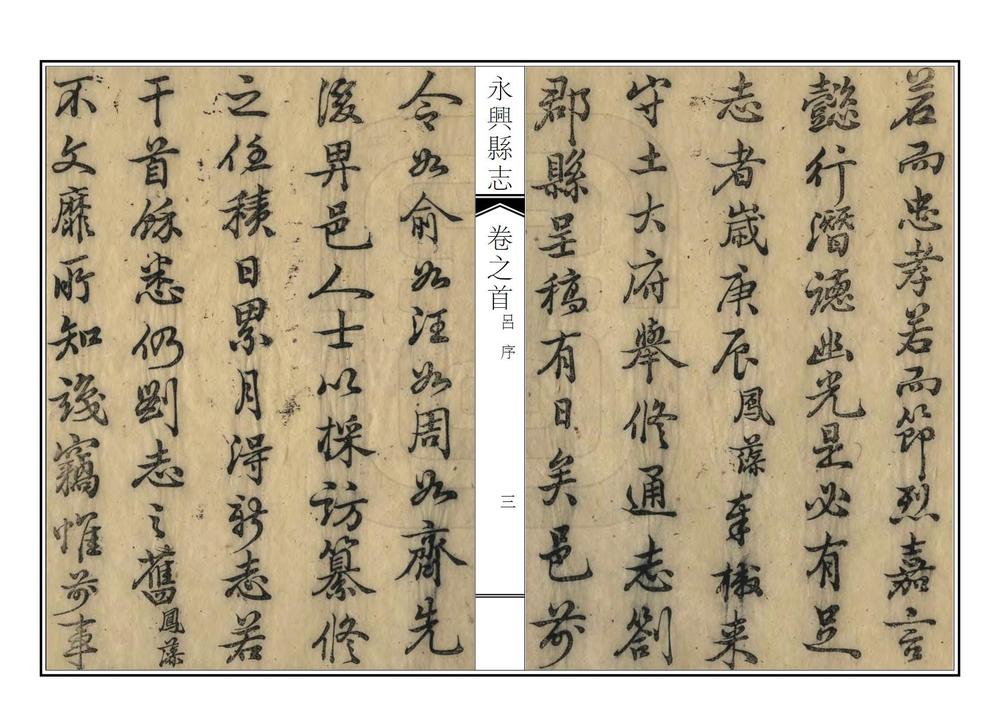 若而忠孝若而節烈嘉言
懿行潛德幽光是必有足
志者歲庚辰鳳藻奉檄来
守土大府舉修通志劄
郡縣呈稿有日矣邑前
永興縣志 卷之首 呂序 三
令如俞如汪如周如齊先
後畀邑人士以採訪纂修
之任積日累月得新志若
干首餘悉仍劉志之舊鳳藻
不文靡所知識竊惟前事